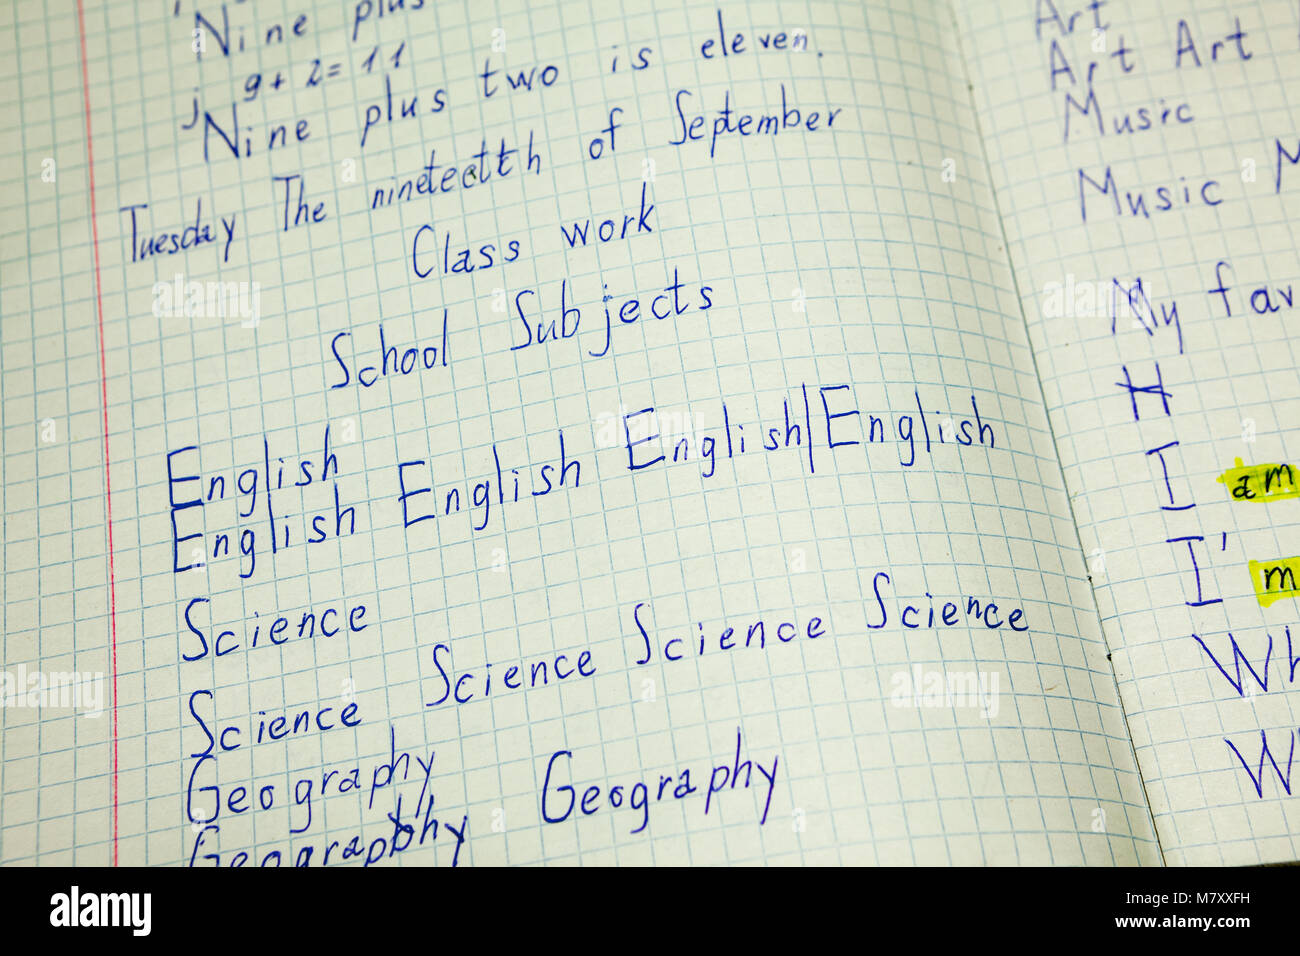 Nine plus
9+2=11
Nine plus two is eleven.
Tuesday The nineteetth of September
Class work
School Subjects
English
English English English English
Science
Science Science Science Science
Geography
Geography Geography
Art
Art Art
Music
Music M
My fav
H
I am
I'm
Wh
W
alamy
Image ID: M7XXFH
www.alamy.com